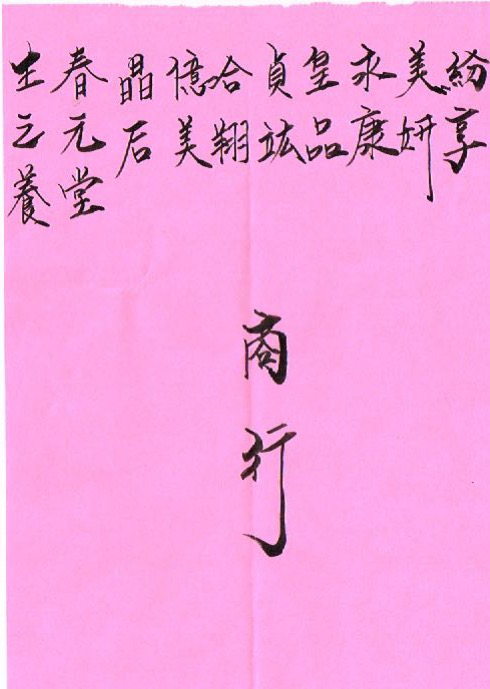 紛享
美妍
永康
皇品
貞竑
哈翔
億美
晶后
春元堂
生之養
商行